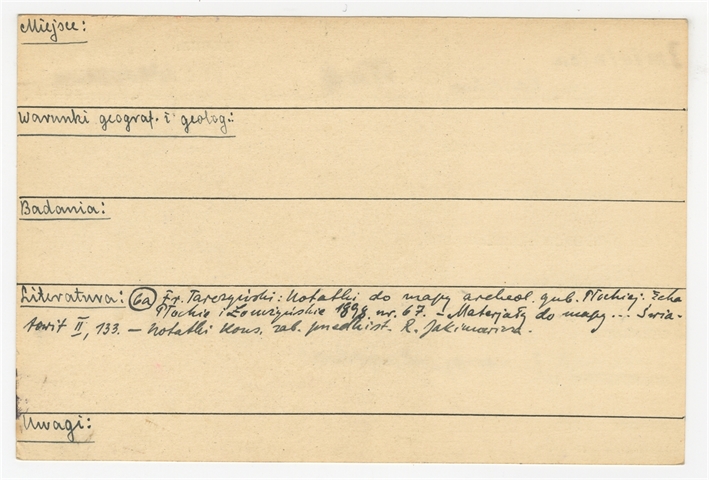 Miejsce:
Warunki geograf. i geolog.:
Badania:
Literatura: (6a) Fr. Tarczyński: Notatki do mapy archeol. gub. Płockiej. Echa
Płockie i Łomżyńskie 1898. nr. 67. – Materjały do mapy ... Świa-
towit II, 133. – Notatki Kons. zab. przedhist. R. Jakimowicza.
Uwagi: